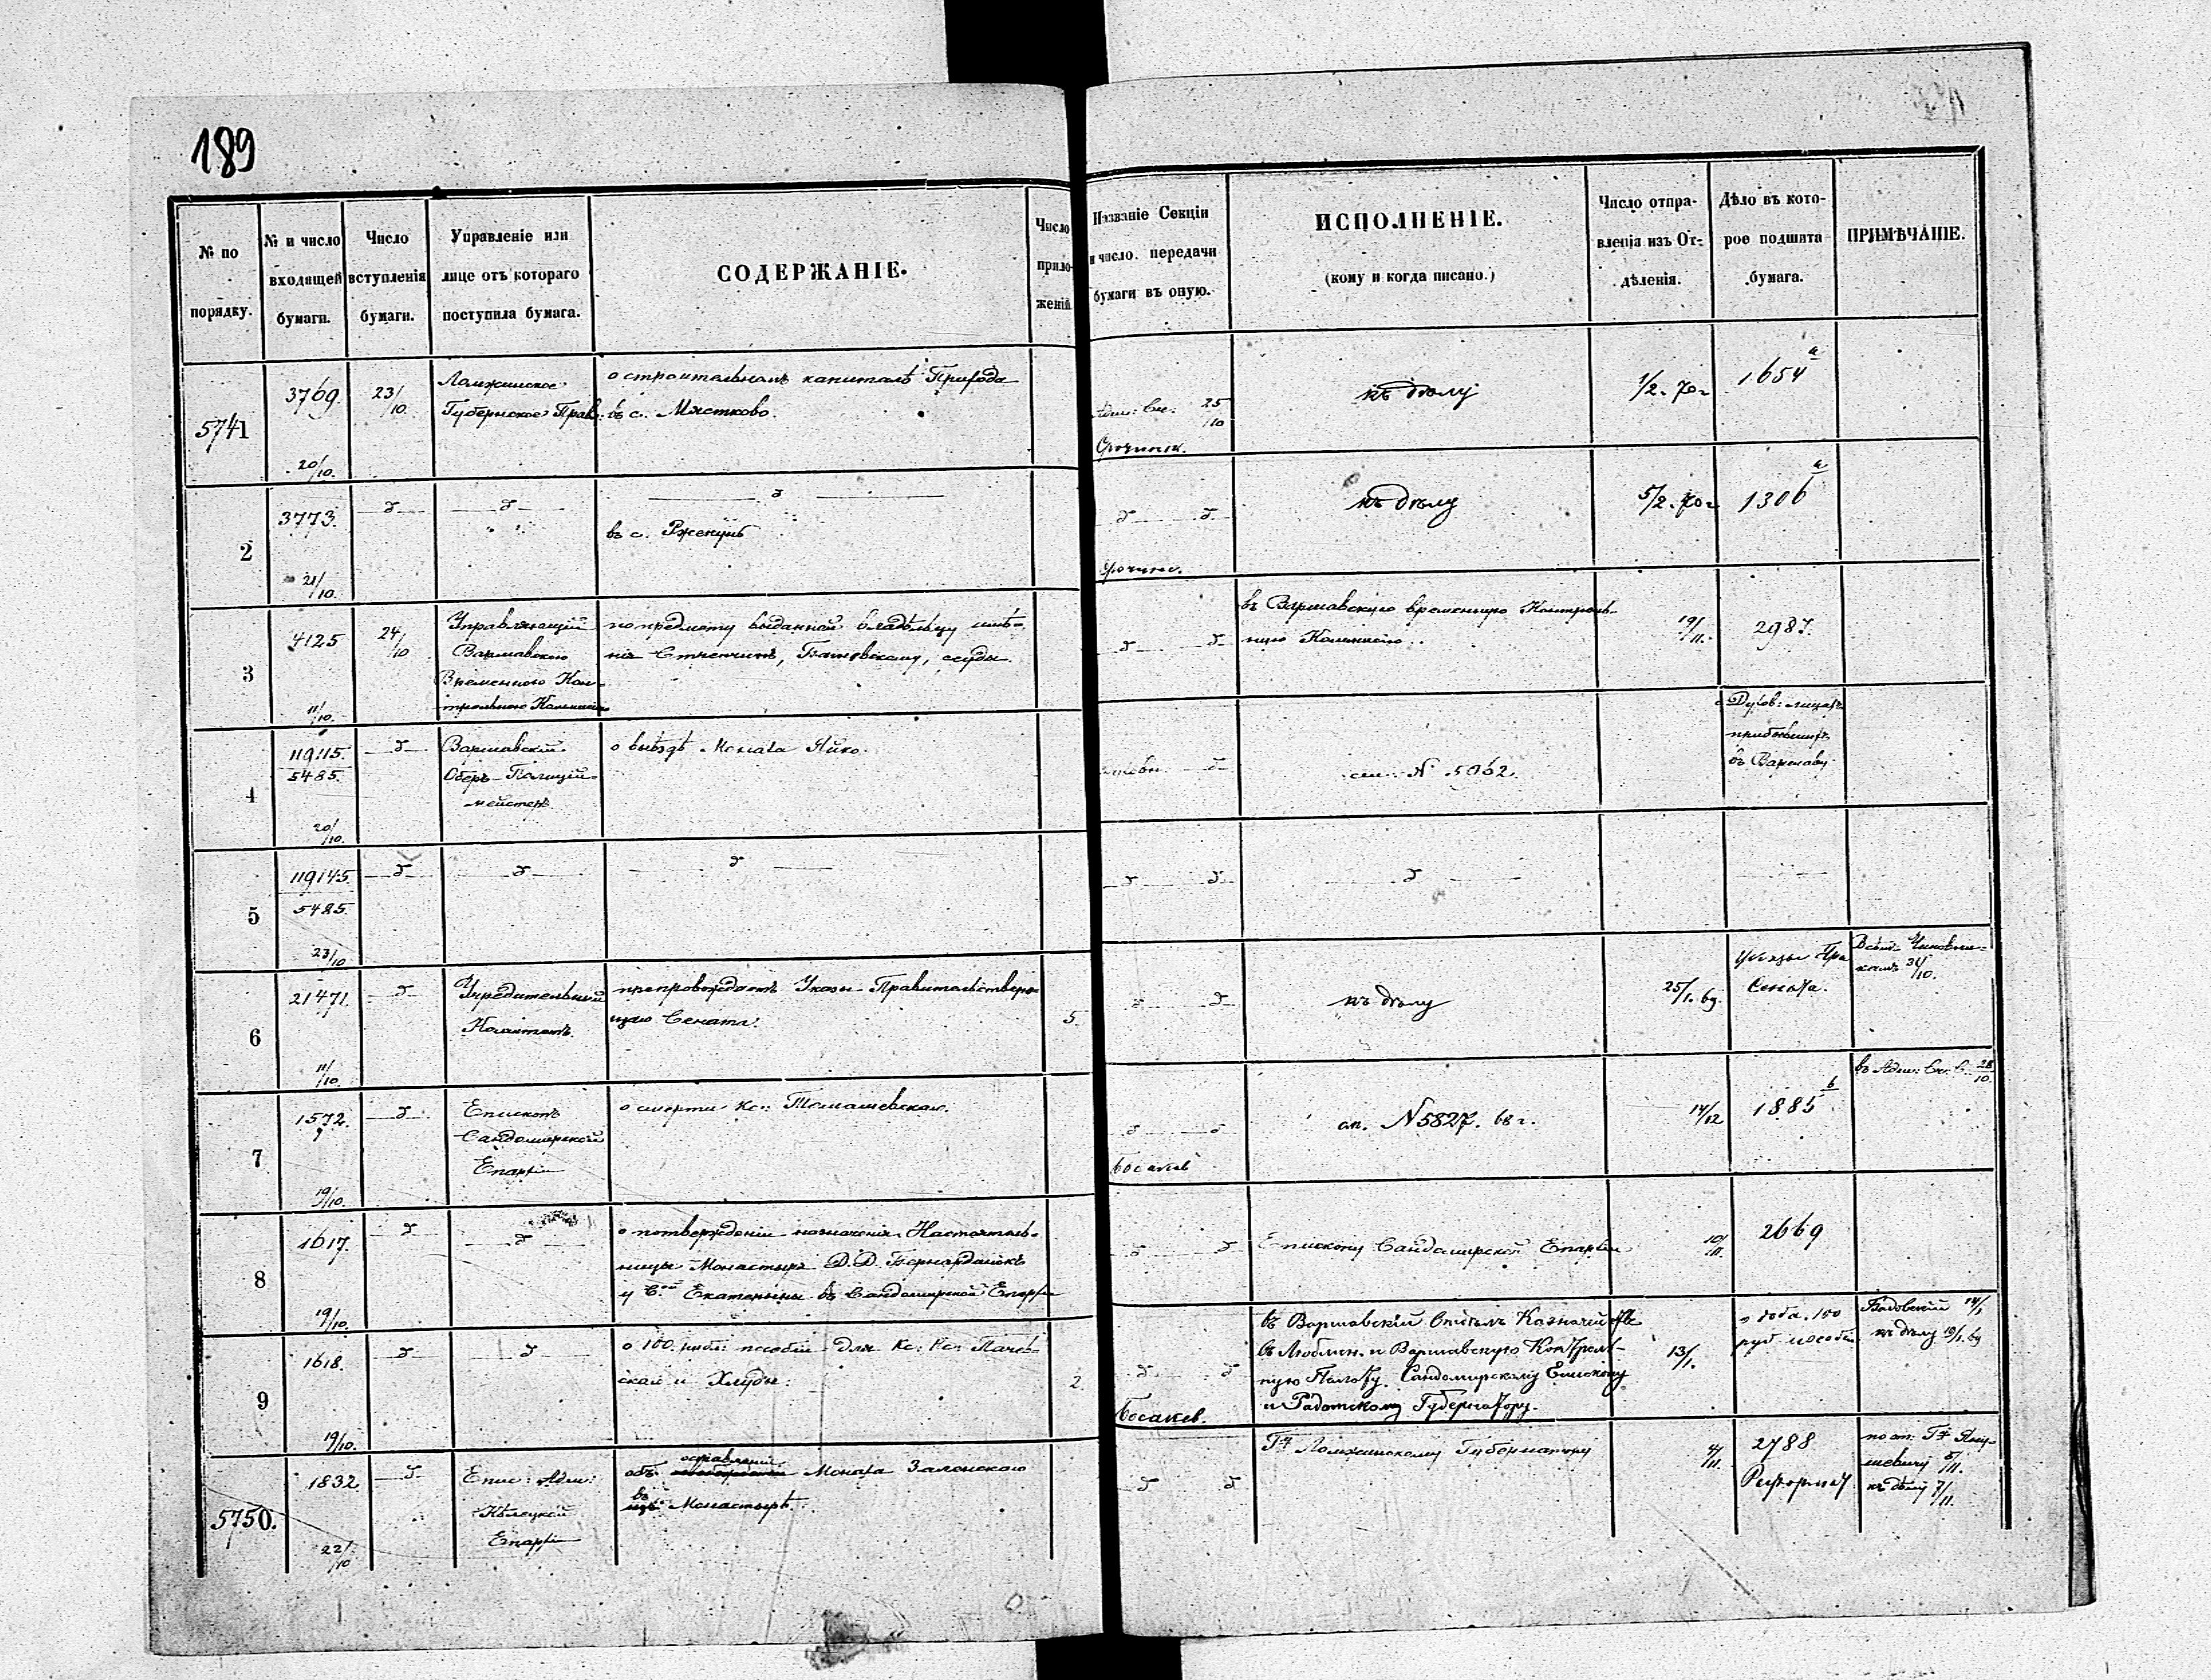 189
№ по порядку.
№ и число входящей бумаги.
Число вступленія бумаги.
Управленіе или лице отъ котораго поступила бумага.
СОДЕРЖАНІЕ.
Число приложеній
Названіе Секціи и число передачи бумаги въ оную.
ИСПОЛНЕНІЕ.
(кому и когда писано.)
Число отправленія изъ Отдѣленія.
Дѣло въ которое подшита бумага.
ПРИМѢЧАНІЕ.
5741
3769.
20/10.
23/10.
Ломжинское
Губернское Прав.
о строительномъ капиталѣ Прихода
въ с. Мястково.
25/10
къ дѣлу
1/2. 70 г
1654 а
2
3773.
21/10.
въ с. Ржекунь
къ дѣлу
5/2. 70 г
1306 а
3
4125
11/10.
24/10
Управляющій
Варшавскою
Временною Кон-
трольною Коммисіею
по предмету выданной владѣльцу имѣ-
нія ссуды.
въ Варшавскую временную Контроль-
ную Коммисію.
19/11.
2987.
4
119115.
5485.
20/10.
Варшавскій
Оберъ-Полицій-
мейстеръ
о выѣздѣ Монаха Яйко.
см. N 5062.
о Духов: лицахъ
прибывшихъ
въ Варшаву
5
119145
5485.
23/10
6
21471.
11/10.
Учредительный
Комитетъ.
препровождаетъ Указы Правительствую-
щаго Сената.
5
къ дѣлу
25/1. 69.
Указы Пра
Сената.
Всѣмъ Чиновни-
камъ 31/10.
7
1572.
19/10.
Епископъ
Сандомирской
Епархіи
о смерти Кс: Томашевскаго.
см. N 5827. 68 г.
14/12
1885 б
въ Адм: Ск. 28/10.
8
1617.
19/10.
о потвержденіи назначенія Настоятель-
ницы Монастыря Д.Д. Бернардинокъ
у Св.ой Екатерины въ Сандомирской Епархіи
Епископу Сандомирской Епархіи
10/11.
2669
9
1618.
19/10.
о 100. рубл: пособіи для Кс: Кс:
и Хлуды:
2.
въ Варшавскій
въ Люблин. и Варшавскую Контроль-
ную Палату. Сандомирскому Епископу
и Радомскому Губернатору.
13/1.
о доба. 100
руб пособія
14/1
къ дѣлу 19/1. 69
5750.
1832
22/10
Епис: Адм:
Кѣлецкой
Епархіи
объ оставленіи Монаха Залонскаго
въ Монастырѣ.
Г-ну Ломжинскому Губернатору
4/11.
2788
по от. Г-ну
5/11.
къ дѣлу 7/11.